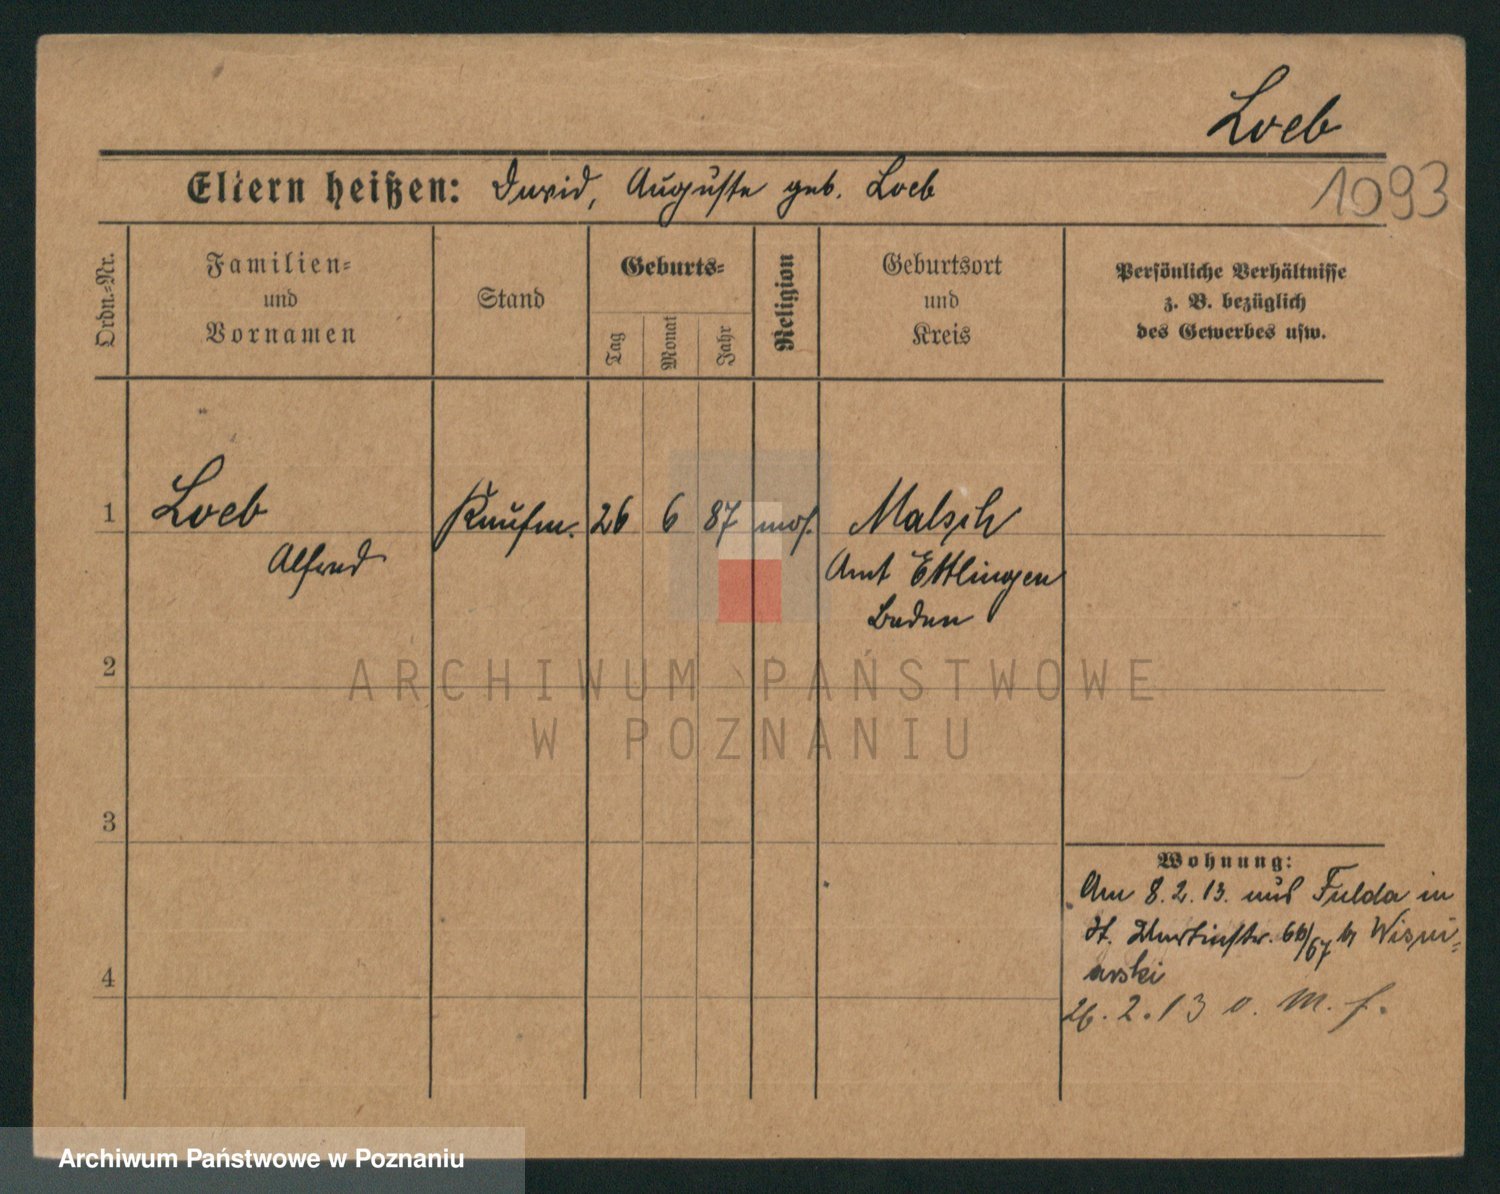 Loeb
Eltern heißen: David, Auguste geb. Loeb
1093
Ordn.-Nr.
Familien-
und
Vornamen
Stand
Geburts-
Tag
Monat
Jahr
Religion
Geburtsort
und
Kreis
Persönliche Verhältnisse
z. B. bezüglich
des Gewerbes usw.
1 Loeb Kaufm. 26 6 87 mos. Malsch
Alfred Amt Ettlingen
Baden
2
ARCHIWUM PAŃSTWOWE
W POZNANIU
3
Wohnung:
Am 8.2.13. aus Fulda in
St. Martinstr. 66/67 b Wisni-
arski
4
26.2.13 v. M. f.
Archiwum Państwowe w Poznaniu